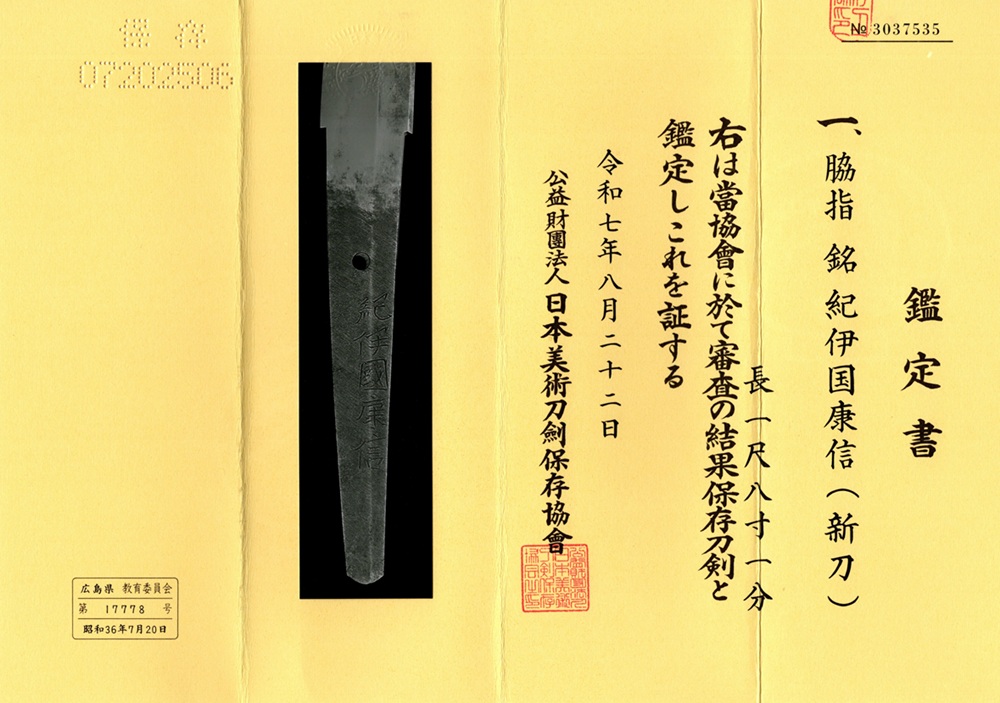 № 3037535
鑑定書
一、脇指 銘 紀伊国康信(新刀)
長一尺八寸一分
右は當協會に於て審査の結果保存刀剣と
鑑定しこれを証する
令和七年八月二十二日
公益財團法人 日本美術刀劍保存協會
紀伊國康信
保存
07202506
広島県 教育委員会
第 17778 号
昭和36年7月20日